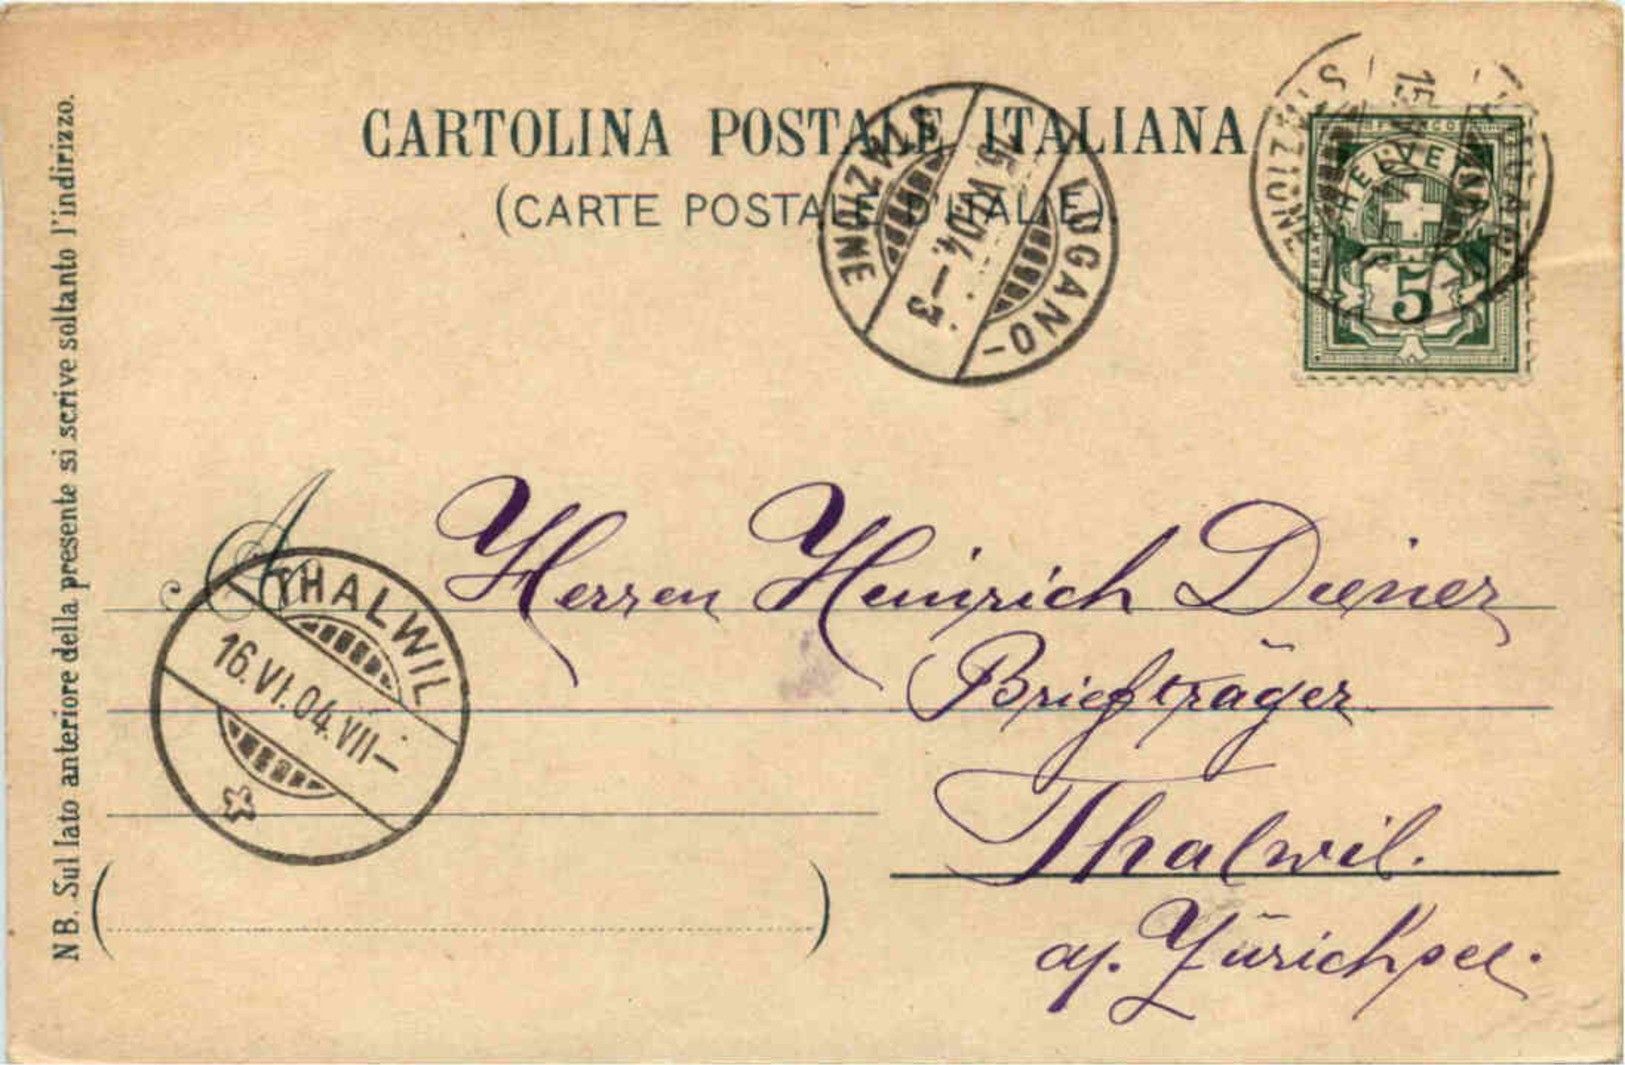 CARTOLINA POSTALE ITALIANA
(CARTE POSTALE D'ITALIE)
LUGANO-STAZIONE
15.VI.04.-3
FRANCO
HELVETIA
5
NB. Sul lato anteriore della presente si scrive soltanto l'indirizzo.
A
Herren Heinrich Diener
Briefträger
Thalwil.
a/. Zürichsee.
THALWIL
16.VI.04.VII-